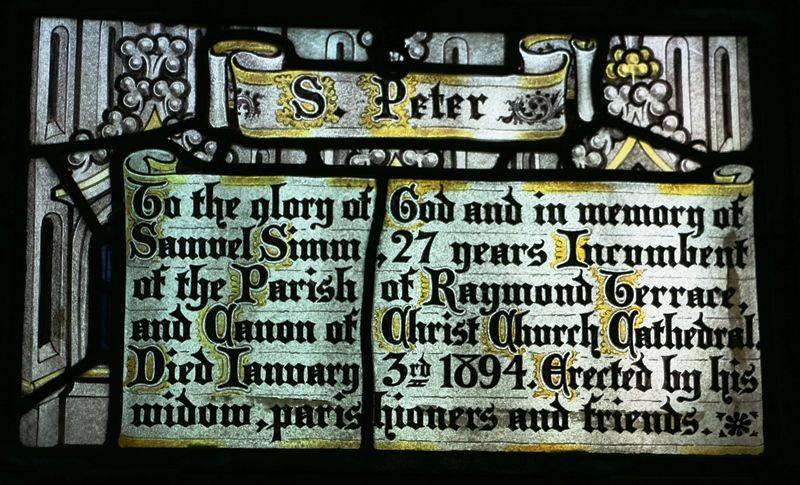 S. Peter
To the glory of God and in memory of
Samuel Simm, 27 years Incumbent
of the Parish of Raymond Terrace,
and Canon of Christ Church Cathedral.
Died January 3rd 1894. Erected by his
widow, parishioners and friends.